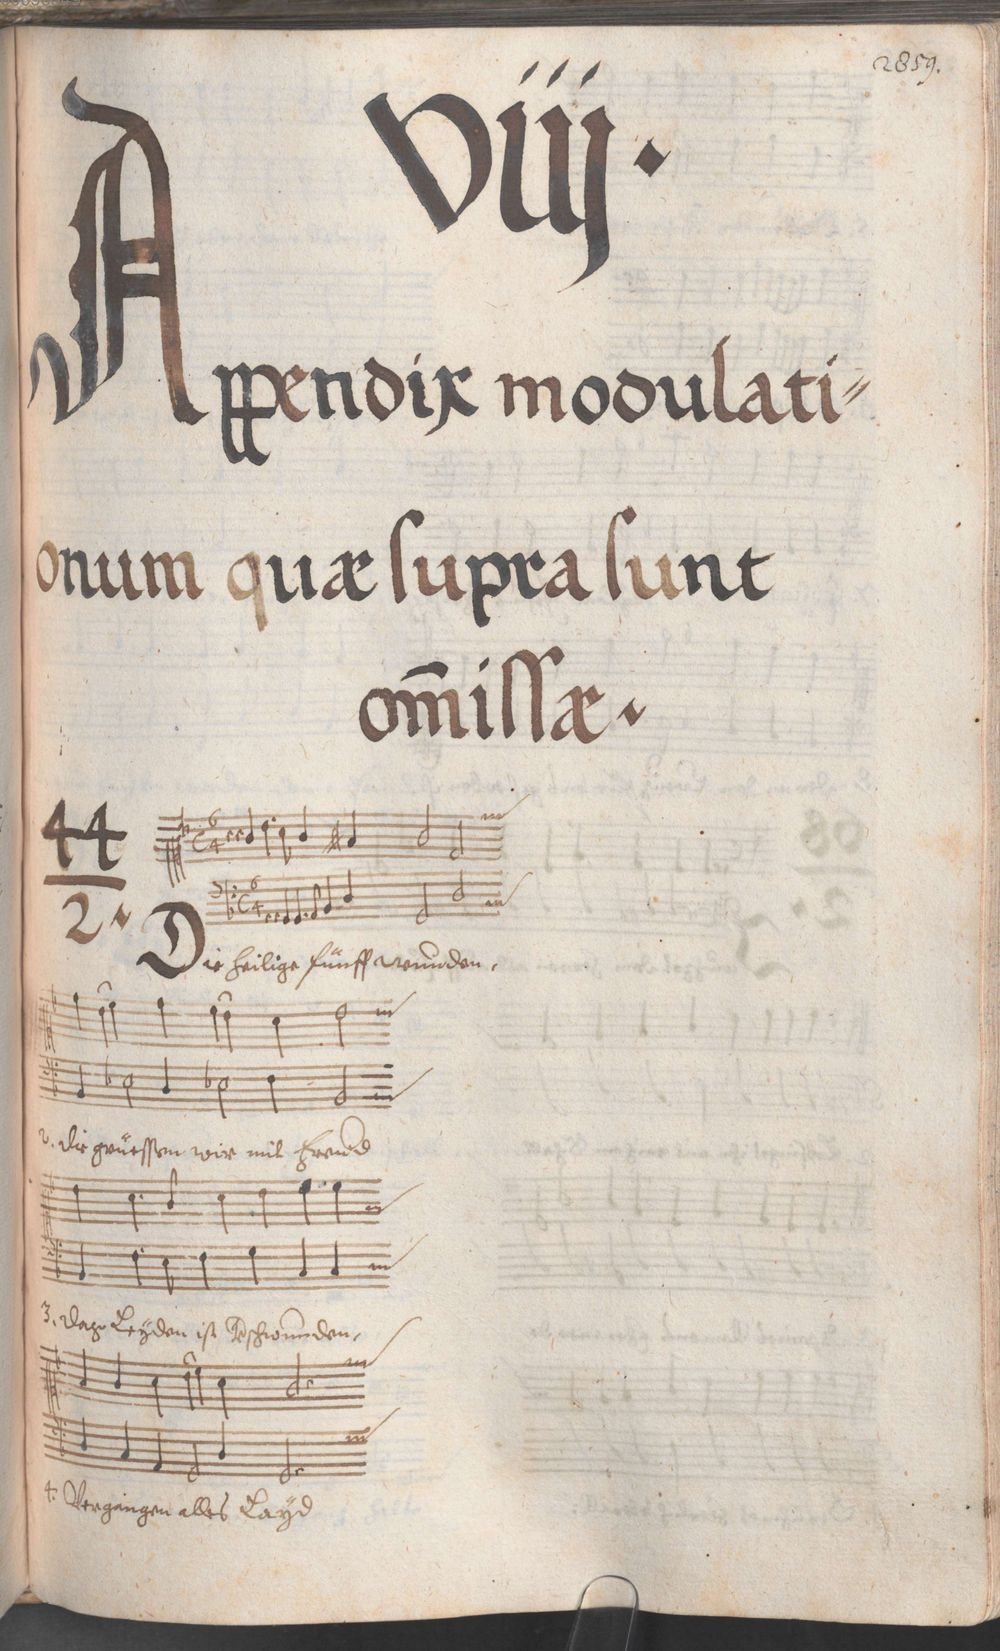 2859.
Viij.
Appendix modulati=
onum quæ supra sunt
om̄issæ.
44
2.
Die heilige fünff wunden,
2. die grüessen wir mit freud
3. daz Leyden ist verschwunden,
4. Vergangen alles Layd